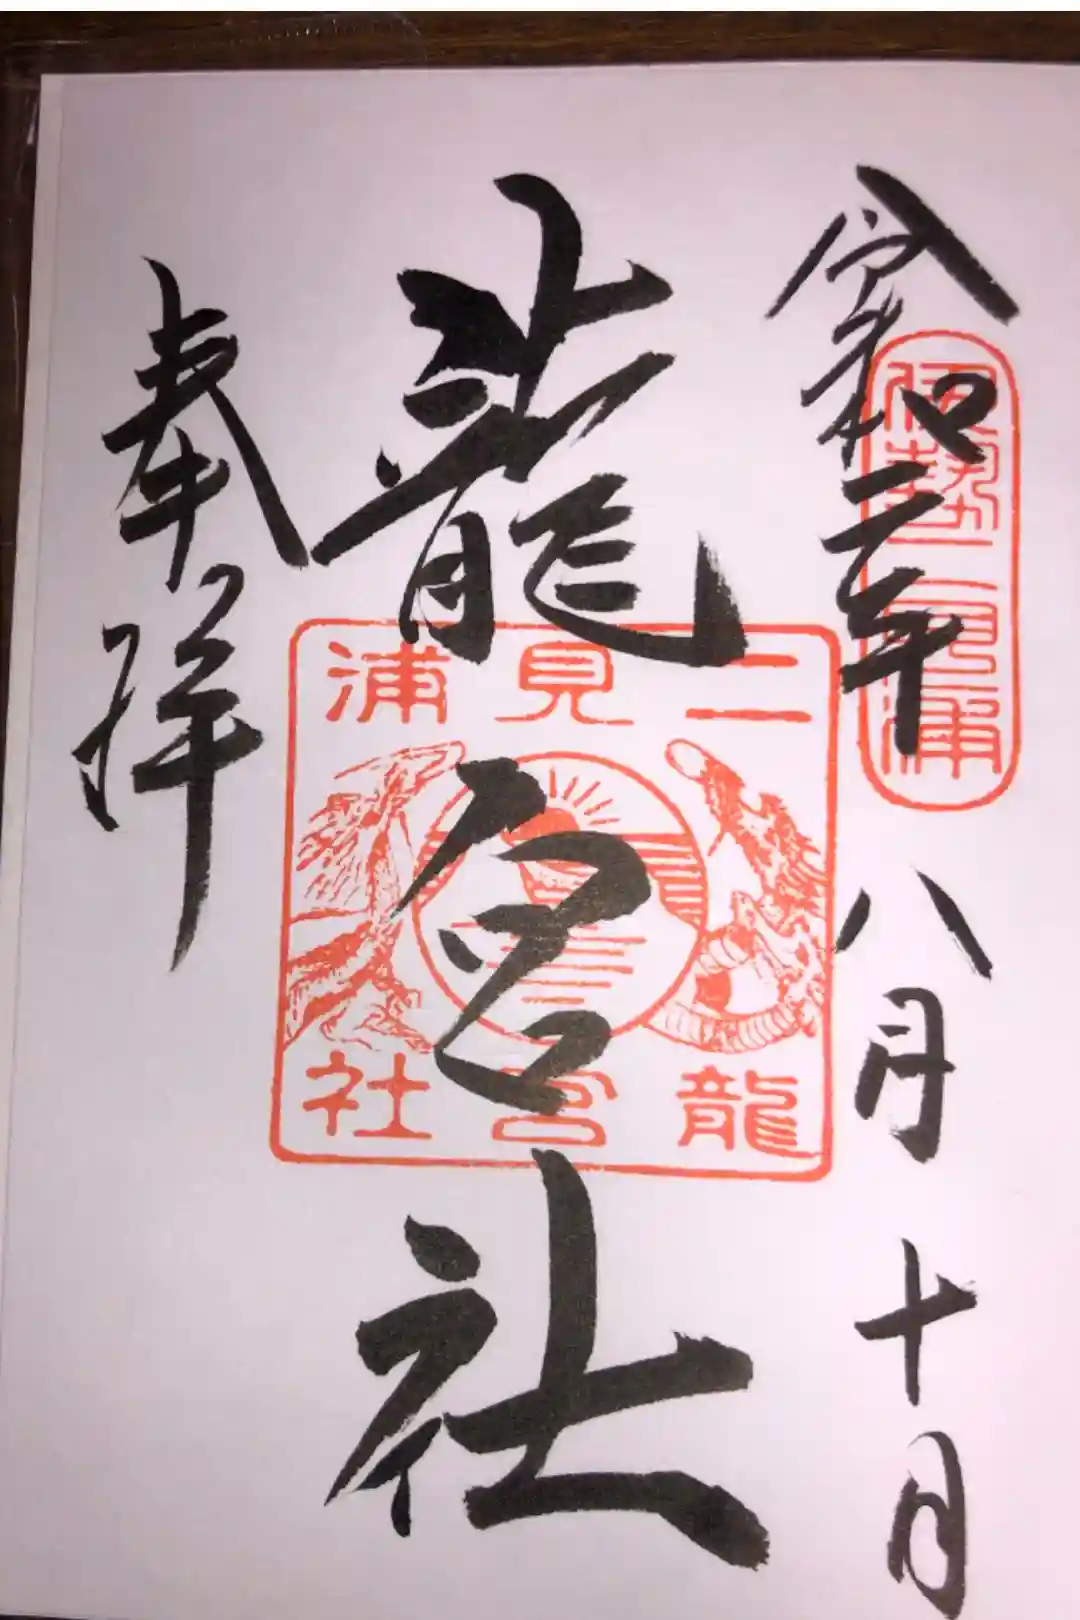 令和二年八月十日
伊勢二見浦
龍宮社
二見浦
龍宮社
奉拝